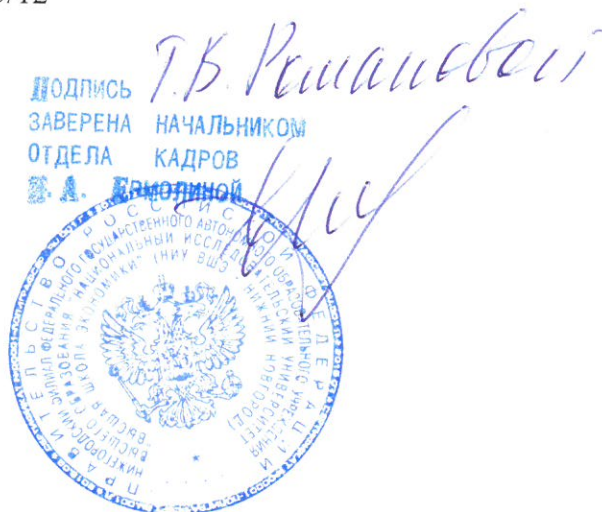 /12
ПОДПИСЬ Т.В. Романовой
ЗАВЕРЕНА НАЧАЛЬНИКОМ
ОТДЕЛА КАДРОВ
Н. А. ЕРМОЛИНОЙ
ПРАВИТЕЛЬСТВО РОССИЙСКОЙ ФЕДЕРАЦИИ
НИЖЕГОРОДСКИЙ ФИЛИАЛ ФЕДЕРАЛЬНОГО ГОСУДАРСТВЕННОГО АВТОНОМНОГО ОБРАЗОВАТЕЛЬНОГО УЧРЕЖДЕНИЯ
ВЫСШЕГО ОБРАЗОВАНИЯ "НАЦИОНАЛЬНЫЙ ИССЛЕДОВАТЕЛЬСКИЙ УНИВЕРСИТЕТ
"ВЫСШАЯ ШКОЛА ЭКОНОМИКИ" (НИУ ВШЭ - НИЖНИЙ НОВГОРОД)